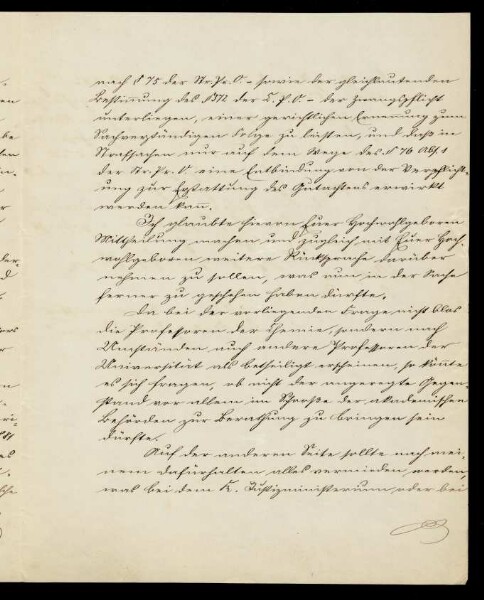 nach § 75 der Str. Pr. O. – sowie der gleichlautenden
Bestimmung des § 372 der C. P. O. – der Zwangspflicht
unterliegen, einer gerichtlichen Ernennung zum
Sachverständigen Folge zu leisten, und daß in
Strafsachen nur auf dem Wege des § 76 Abs. 1
der Str. Pr. O. eine Entbindung von der Verpflicht-
ung zur Erstattung des Gutachtens erwirkt
werden kann.
Ich glaubte hievon Euer Hochwohlgeboren
Mittheilung machen und zugleich mit Euer Hoch-
wohlgeboren weitere Rücksprache darüber
nehmen zu sollen, was nun in der Sache
ferner zu geschehen haben dürfte.
Da bei der vorliegenden Frage nicht blos
die Professoren der Chemie, sondern nach
Umständen auch andere Professoren der
Universität als betheiligt erscheinen, so könnte
es sich fragen, ob nicht der angeregte Gegen-
stand vor allem im Schooße der akademischen
Behörden zur Berathung zu bringen sein
dürfte.
Auf der anderen Seite sollte nach mei-
nem Dafürhalten alles vermieden werden,
was bei dem K. Justizministerium oder bei